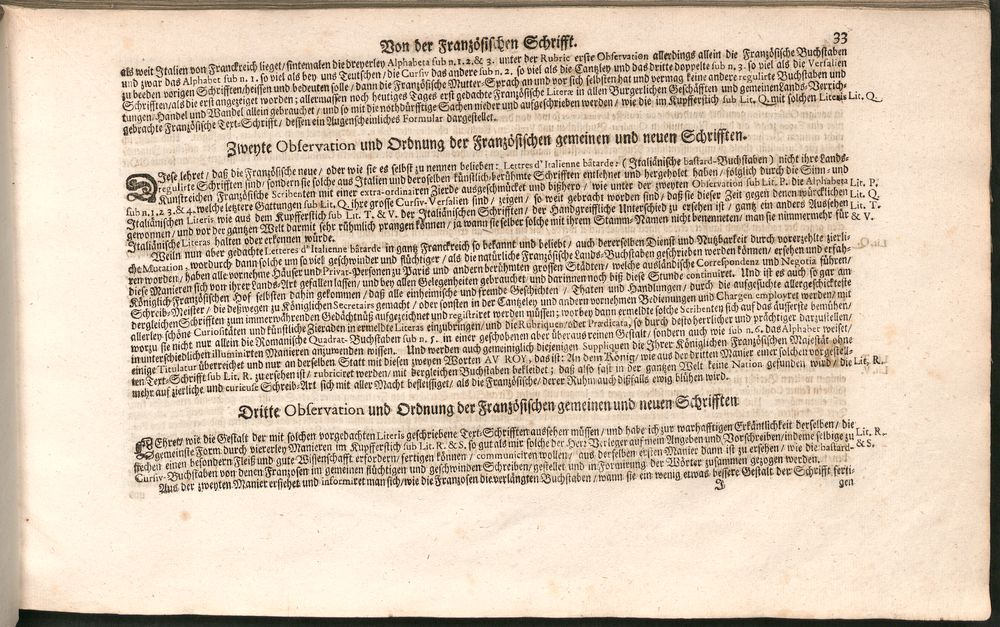 Von der Französischen Schrifft. 33
als weit Italien von Franckreich lieget/ sintemalen die dreyerley Alphabeta sub n. 1. 2. & 3. unter der Rubric erste Observation allerdings allein die Französische Buchstaben
und zwar das Alphabet sub n. 1. so viel als bey uns Teutschen/ die Cursiv das andere sub n. 2. so viel die Cantzley und das dritte doppelte sub n. 3. so viel als die Versalien
zu beeden vorigen Schrifften/ heissen und bedeuten solle/ dann die Französische Mutter-Sprach an und vor sich selbsten hat und vermag keine andere regulirte Buchstaben und
Schrifften/ als die erst angezeiget worden; allermassen noch heutiges Tages erst gedachte Französische Literæ in allen Burgerlichen Geschäfften und gemeinen Lands-Verrich-
tungen/ Handel und Wandel allein gebrauchet/ und so mit die nothdürfftige Sachen nieder und aufgeschrieben werden/ wie die im Kupfferstich sub Lit. Q. mit solchen Literis Lit. Q.
gebrachte Französische Text-Schrifft/ dessen ein Augenscheinliches Formular dargestellet.
Zweyte Observation und Ordnung der Französischen gemeinen und neuen Schrifften.
DIese lehret/ daß die Französische neue/ oder wie es selbst zu nennen belieben: Lettres d'Italienne bâtarde: (Italiänische bastard-Buchstaben) nicht ihre Lands-
regulirte Schrifften sind/ sondern sie solche aus Italien und deroselben künstlich-berühmte Schrifften entlehnet und hergeholet haben/ folglich durch die Sinn- und
Kunstreichen Französische Scribenten mit einer extra-ordinairen Zierde ausgeschmücket und bißhero/ wie unter der zweyten Observation sub Lit. P. die Alphabeta Lit. P.
sub n. 1. 2 3. & 4. welche letztere Gattungen sub Lit. Q. ihre grosse Cursiv-Versalien sind/ zeigen/ so weit gebracht worden sind/ daß sie dieser Zeit gegen denen würcklichen Lit. Q.
Italiänischen Literis wie aus dem Kupfferstich sub Lit. T. & V. der Italiänischen Schrifften/ der Handgreiffliche Unterschied zu ersehen ist/ gantz ein anders Aussehen Lit. T.
gewonnen/ und vor der gantzen Welt darmit sehr rühmlich prangen können/ ja wann sie selber solche mit ihrem Stamm-Namen nicht benenneten/ man sie nimmermehr für & V.
Italiänische Literas halten oder erkennen würde.
Weiln nun aber gedachte Lettres d'Italienne bâtarde in gantz Franckreich so bekannt und beliebt/ auch dererselben Dienst und Nutzbarkeit durch vorerzehlte zierli-
che Mutation, wordurch dann solche um so viel geschwinder und flüchtiger/ als die natürliche Französische Lands-Buchstaben geschrieben werden können/ ersehen und erfah-
ren worden/ haben alle vornehme Häuser und Privat-Personen zu Paris und andern berühmten grossen Städten/ welche ausländische Correspondenz und Negotia führen/
diese Manieren sich vor ihrer Lands-Art gefallen lassen/ und bey allen Gelegenheiten gebrauchet/ und darinnen noch biß diese Stunde continuiret. Und ist es auch so gar am
Königlich-Französischen Hof selbsten dahin gekommen/ daß alle einheimische und fremde Geschichten/ Thaten und Handlungen/ durch die aufgesuchte allergeschickteste
Schreib-Meister/ die deßwegen zu Königlichen Secretairs gemacht/ oder sonsten in der Cantzeley und andern vornehmen Bedienungen und Chargen employret werden/ mit
dergleichen Schrifften zum immerwährenden Gedächtnüß aufgezeichnet und registriret werden müssen; worbey dann ermeldte solche Scribenten sich auf das äusserste bemühen/
allerley schöne Curiositäten und künstliche Zieraden in ermeldte Literas einzubringen/ und die Rubriquen/ oder Prædicata, so durch desto herrlicher und prächtiger darzustellen/
worzu sie nicht nur allein die Romanische Quadrat-Buchstaben sub n. 5. in einer geschobenen aber überaus reinen Gestalt/ sondern auch wie sub n. 6. das Alphabet weiset/
in unterschiedlichen illuminirten Manieren anzuwenden wissen. Und werden auch gemeiniglich diejenigen Suppliquen die Ihrer Königlichen Französischen Majestät ohne
einige Titulatur überreichet und nur an derselben Statt mit diesen zweyen Worten AV ROY, das ist: An dem König/ wie aus der dritten Manier einer solchen vorgestell-
ten Text-Schrifft sub Lit. R. zu ersehen ist/ rubriciret werden/ mit dergleichen Buchstaben bekleidet; daß also fast in der gantzen Welt keine Nation gefunden wird/ die Lit. R.
mehr auf zierliche und curieuse Schreib-Art sich mit aller Macht befleissiget/ als die Französische/ derer Ruhm auch dißfalls ewig blühen wird.
Dritte Observation und Ordnung der Französischen gemeinen und neuen Schrifften
LEhret/ wie die Gestalt der mit solchen vorgedachten Literis geschriebene Text-Schrifften aussehen müssen/ und habe ich zur warhafftigen Erkämtlichkeit derselben/ die Lit. R.
gemeinste Form durch viererley Manieren im Kupfferstich sub Lit. R. & S. so gut als mit solche der Herz Verleger auf mein Angeben und Vorschreiben/ indeme selbige zu & S.
stechen einen besondern Fleiß und gute Wissenschafft erfordern/ fertigen können/ communiciren wollen/ aus derselben ersten Manier dann ist zu ersehen/ wie die bastard-
Cursiv-Buchstaben von denen Franzosen im gemeinen flüchtigen und geschwinden Schreiben/ gestellet und in Formirung der Wörter zusammen gezogen werden.
Aus der zweyten Manier ersiehet und informiret man sich/ wie die Franzosen die verlängten Buchstaben/ wann sie ein wenig etwas bessere Gestalt der Schrifft ferti-
J gen